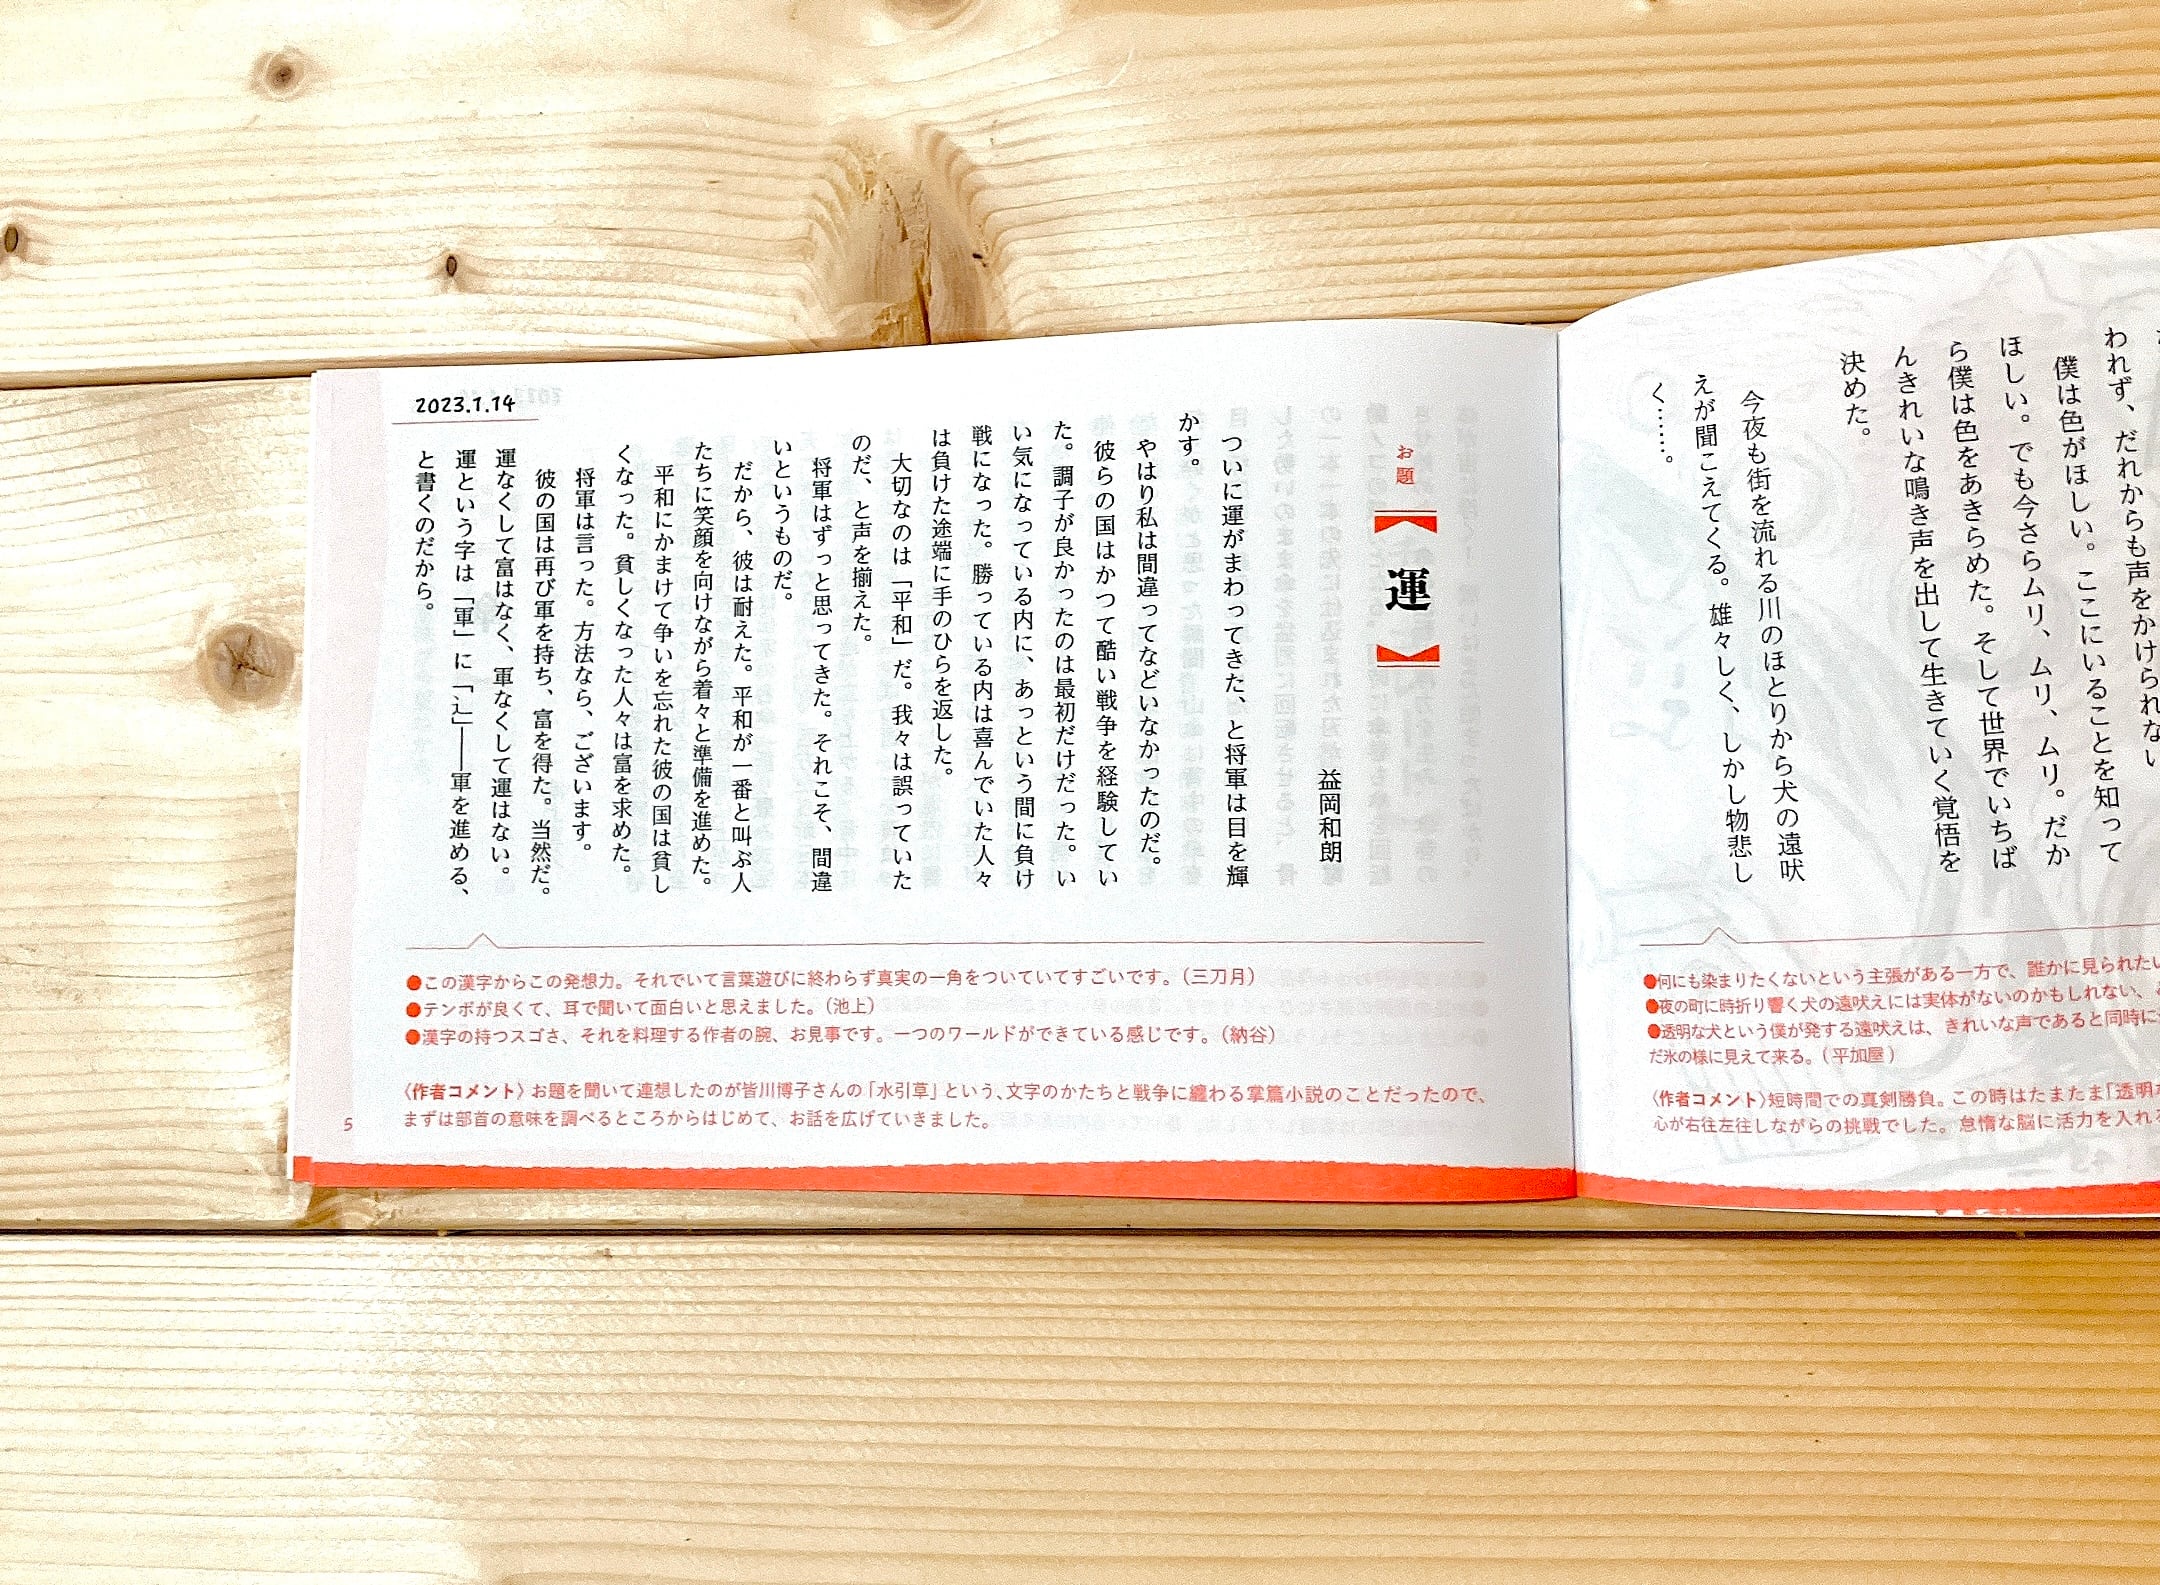 われず、だれからも声をかけられない
僕は色がほしい。ここにいることを知って
ほしい。でも今さらムリ、ムリ、ムリ。だか
ら僕は色をあきらめた。そして世界でいちば
んきれいな鳴き声を出して生きていく覚悟を
決めた。
今夜も街を流れる川のほとりから犬の遠吠
えが聞こえてくる。雄々しく、しかし物悲し
く……。
●何にも染まりたくないという主張がある一方で、誰かに見られたい
●夜の町に時折り響く犬の遠吠えには実体がないのかもしれない、
●透明な犬という僕が発する遠吠えは、きれいな声であると同時に
だ氷の様に見えて来る。（平加屋）
〈作者コメント〉短時間での真剣勝負。この時はたまたま「透明
心が右往左往しながらの挑戦でした。怠惰な脳に活力を入れ
お題
【運】
益岡和朗
ついに運がまわってきた、と将軍は目を輝
かす。
やはり私は間違ってなどいなかったのだ。
彼らの国はかつて酷い戦争を経験してい
た。調子が良かったのは最初だけだった。い
い気になっている内に、あっという間に負け
戦になった。勝っている内は喜んでいた人々
は負けた途端に手のひらを返した。
大切なのは「平和」だ。我々は誤っていた
のだ、と声を揃えた。
将軍はずっと思ってきた。それこそ、間違
いというものだ。
だから、彼は耐えた。平和が一番と叫ぶ人
たちに笑顔を向けながら着々と準備を進めた。
平和にかまけて争いを忘れた彼の国は貧し
くなった。貧しくなった人々は富を求めた。
将軍は言った。方法なら、ございます。
彼の国は再び軍を持ち、富を得た。当然だ。
運なくして富はなく、軍なくして運はない。
運という字は「軍」に「辶」――軍を進める、
と書くのだから。
2023.1.14
●この漢字からこの発想力。それでいて言葉遊びに終わらず真実の一角をついていてすごいです。（三刀月）
●テンポが良くて、耳で聞いて面白いと思えました。（池上）
●漢字の持つスゴさ、それを料理する作者の腕、お見事です。一つのワールドができている感じです。（納谷）
〈作者コメント〉お題を聞いて連想したのが皆川博子さんの「水引草」という、文字のかたちと戦争に纏わる掌篇小説のことだったので、
まずは部首の意味を調べるところからはじめて、お話を広げていきました。
5